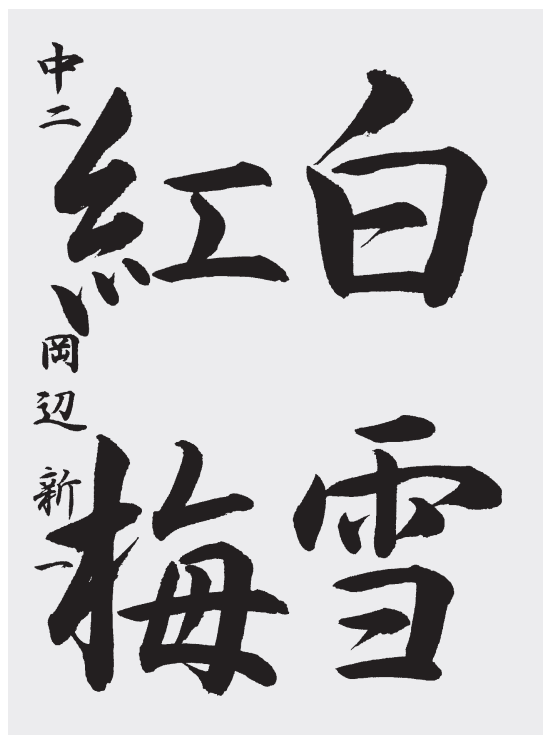 白雪
紅梅
中二 岡辺 新一